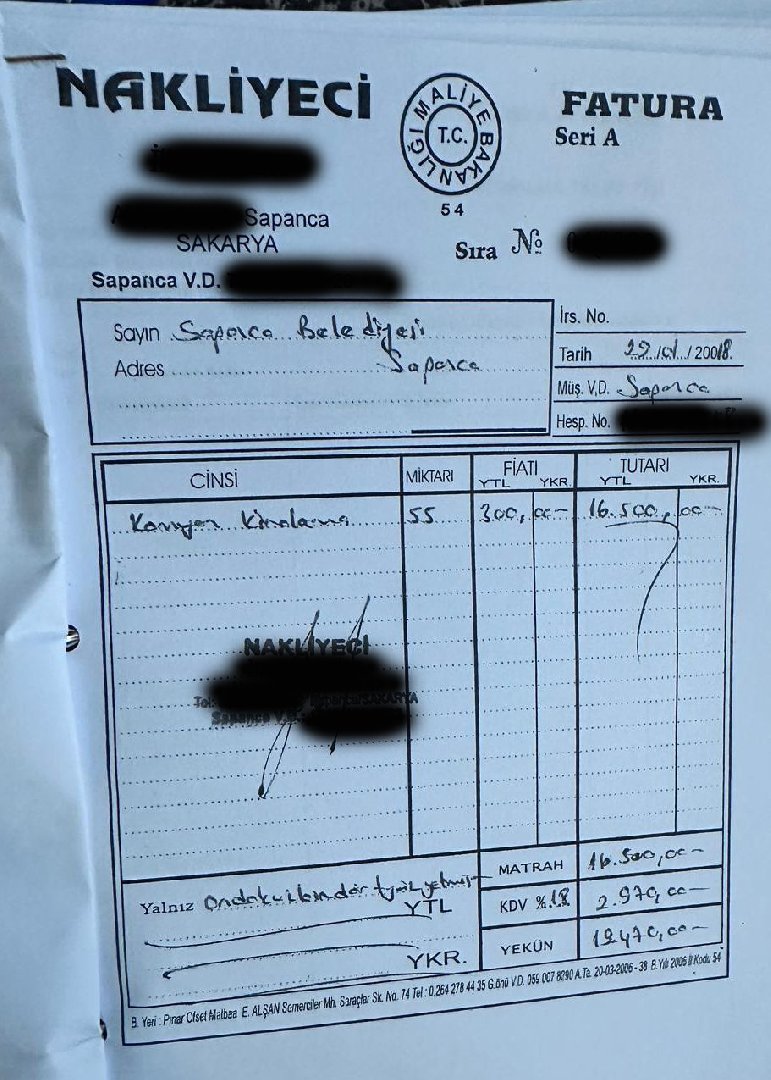 NAKLİYECİ
T.C. MALİYE BAKANLIĞI
54
FATURA
Seri A
Sapanca
SAKARYA
Sıra №
Sapanca V.D.
Sayın Sapanca Belediyesi
Adres Sapanca
İrs. No.
Tarih /2008
Müş. V.D. Sapanca
Hesp. No.
CİNSİ MİKTARI FİATI TUTARI
YTL YKR. YTL YKR.
Kamyon Kiralama 55 300,00- 16.500,00-
NAKLİYECİ
Sapanca/SAKARYA
Sapanca V.D.
MATRAH 16.500,00-
Yalnız Ondokuzbindörtyüzyetmiş YTL
KDV %18 2.970,00-
YKR.
YEKÜN 19.470,00-
B. Yeri : Pınar Ofset Matbaa E. ALŞAN Semerciler Mh. Saraçlar Sk. No. 74 Tel : 0 264 278 44 35 G.önü V.D. 055 007 8290 A.Ta. 20-03-2006 - 38 B.Yılı 2006 İl Kodu 54